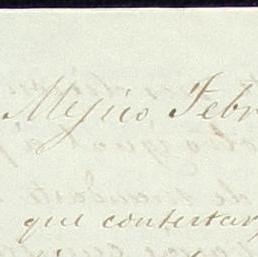 Mejico Febr
que contestar